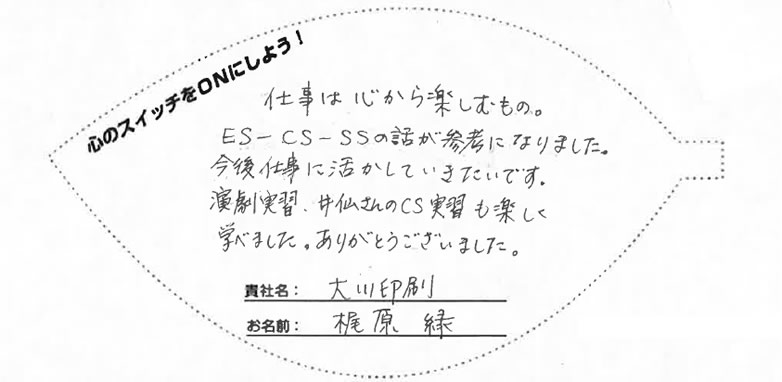 心のスイッチをONにしよう!
仕事は心から楽しむもの。
ES-CS-SSの話が参考になりました。
今後仕事に活かしていきたいです。
演劇実習、井仙さんのCS実習も楽しく
学べました。ありがとうございました。
貴社名: 大川印刷
お名前: 梶原 緑